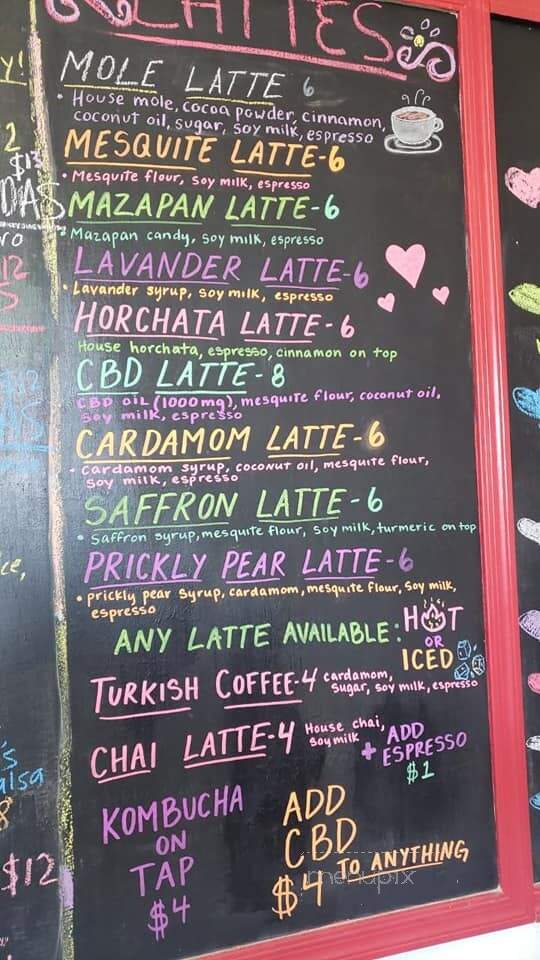 LATTES
MOLE LATTE 6
• House mole, cocoa powder, cinnamon,
coconut oil, sugar, soy milk, espresso
MESQUITE LATTE-6
• Mesquite flour, soy milk, espresso
MAZAPAN LATTE-6
• Mazapan candy, soy milk, espresso
LAVANDER LATTE-6
• Lavander syrup, soy milk, espresso
HORCHATA LATTE-6
House horchata, espresso, cinnamon on top
CBD LATTE-8
CBD oil (1000mg), mesquite flour, coconut oil,
soy milk, espresso
CARDAMOM LATTE-6
• Cardamom syrup, coconut oil, mesquite flour,
soy milk, espresso
SAFFRON LATTE-6
• Saffron syrup, mesquite flour, soy milk, turmeric on top
PRICKLY PEAR LATTE-6
• prickly pear syrup, cardamom, mesquite flour, soy milk,
espresso
ANY LATTE AVAILABLE: HOT
OR
ICED
TURKISH COFFEE-4 cardamom,
sugar, soy milk, espresso
CHAI LATTE-4 House chai,
soy milk
+ ADD
ESPRESSO
$1
KOMBUCHA
ON
TAP
$4
ADD
CBD
TO ANYTHING
$4
menupix
Y!
2
$13
DAS
ro
12
S
$12
ce,
's
alsa
8
$12